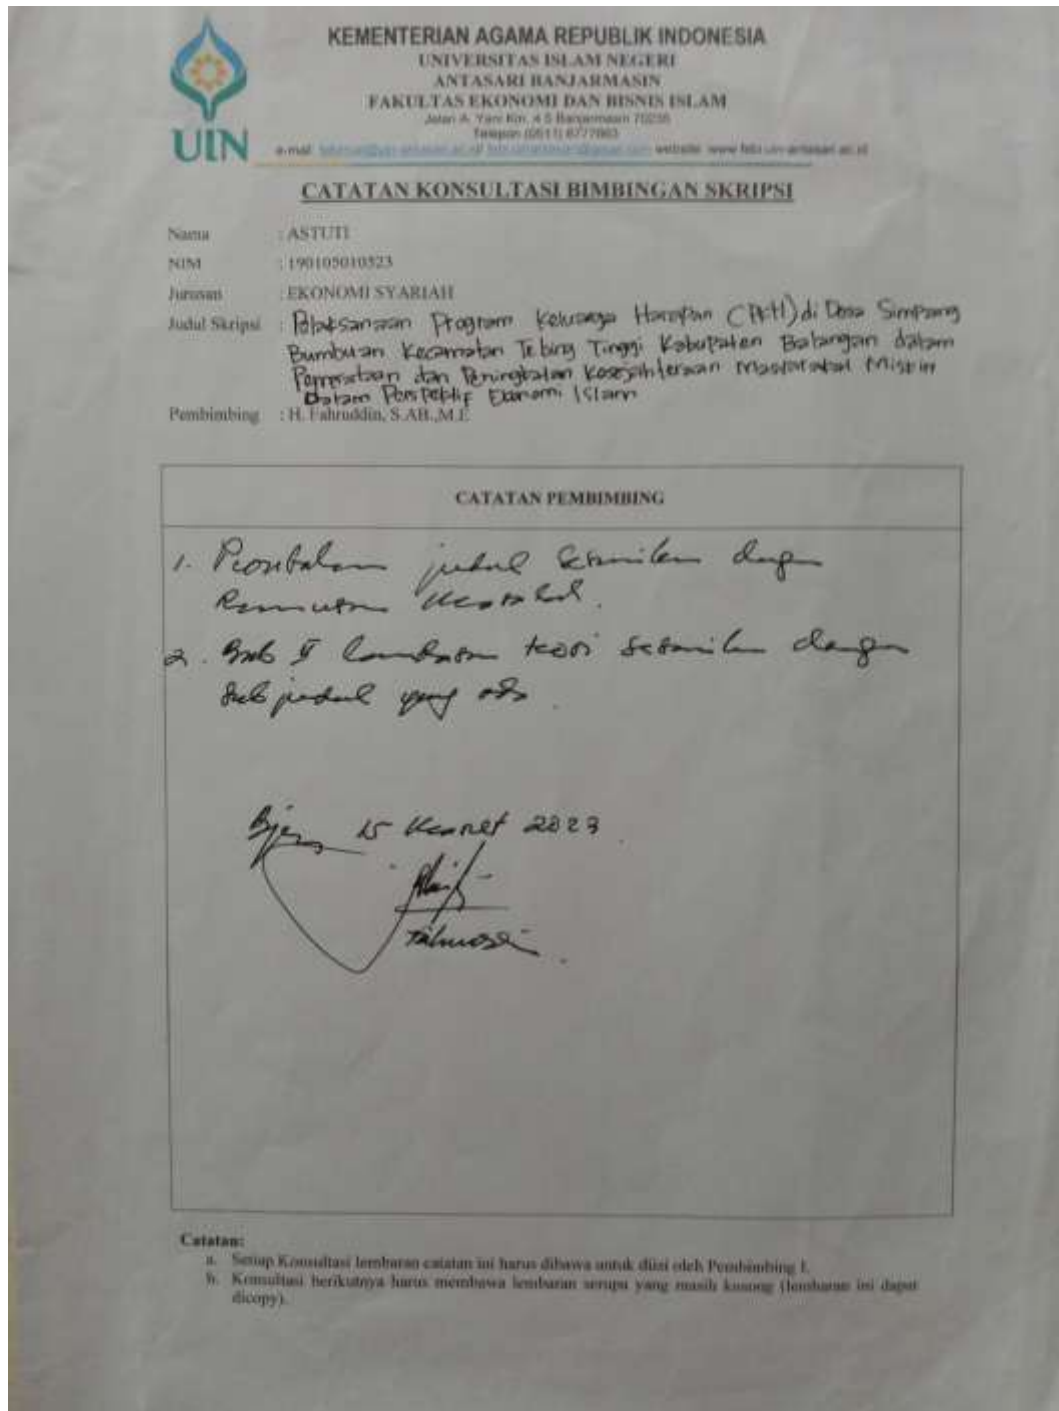 KEMENTERIAN AGAMA REPUBLIK INDONESIA
UNIVERSITAS ISLAM NEGERI
ANTASARI BANJARMASIN
FAKULTAS EKONOMI DAN BISNIS ISLAM
Jalan A. Yani Km. 4.5 Banjarmasin 70235
Telepon (0511)
UIN
e-mail website
CATATAN KONSULTASI BIMBINGAN SKRIPSI
Nama : ASTUTI
NIM : 190105010523
Jurusan : EKONOMI SYARIAH
Judul Skripsi : Pelaksanaan Program Keluarga Harapan (PKH) di Desa Simpang
Bumbuan Kecamatan Tebing Tinggi Kabupaten Balangan dalam
dan Peningkatan Kesejahteraan Masyarakat Miskin
Dalam Perspektif Ekonomi Islam
Pembimbing : H. Fahruddin, S.AB.,M.E
CATATAN PEMBIMBING
1. judul dengan
2. Bab II landasan teori dengan
Sub judul yang ada.
15 Maret 2023
Catatan:
a. Setiap Konsultasi lembaran catatan ini harus dibawa untuk diisi oleh Pembimbing I.
b. Konsultasi berikutnya harus membawa lembaran serupa yang masih kosong (lembaran ini dapat
dicopy).